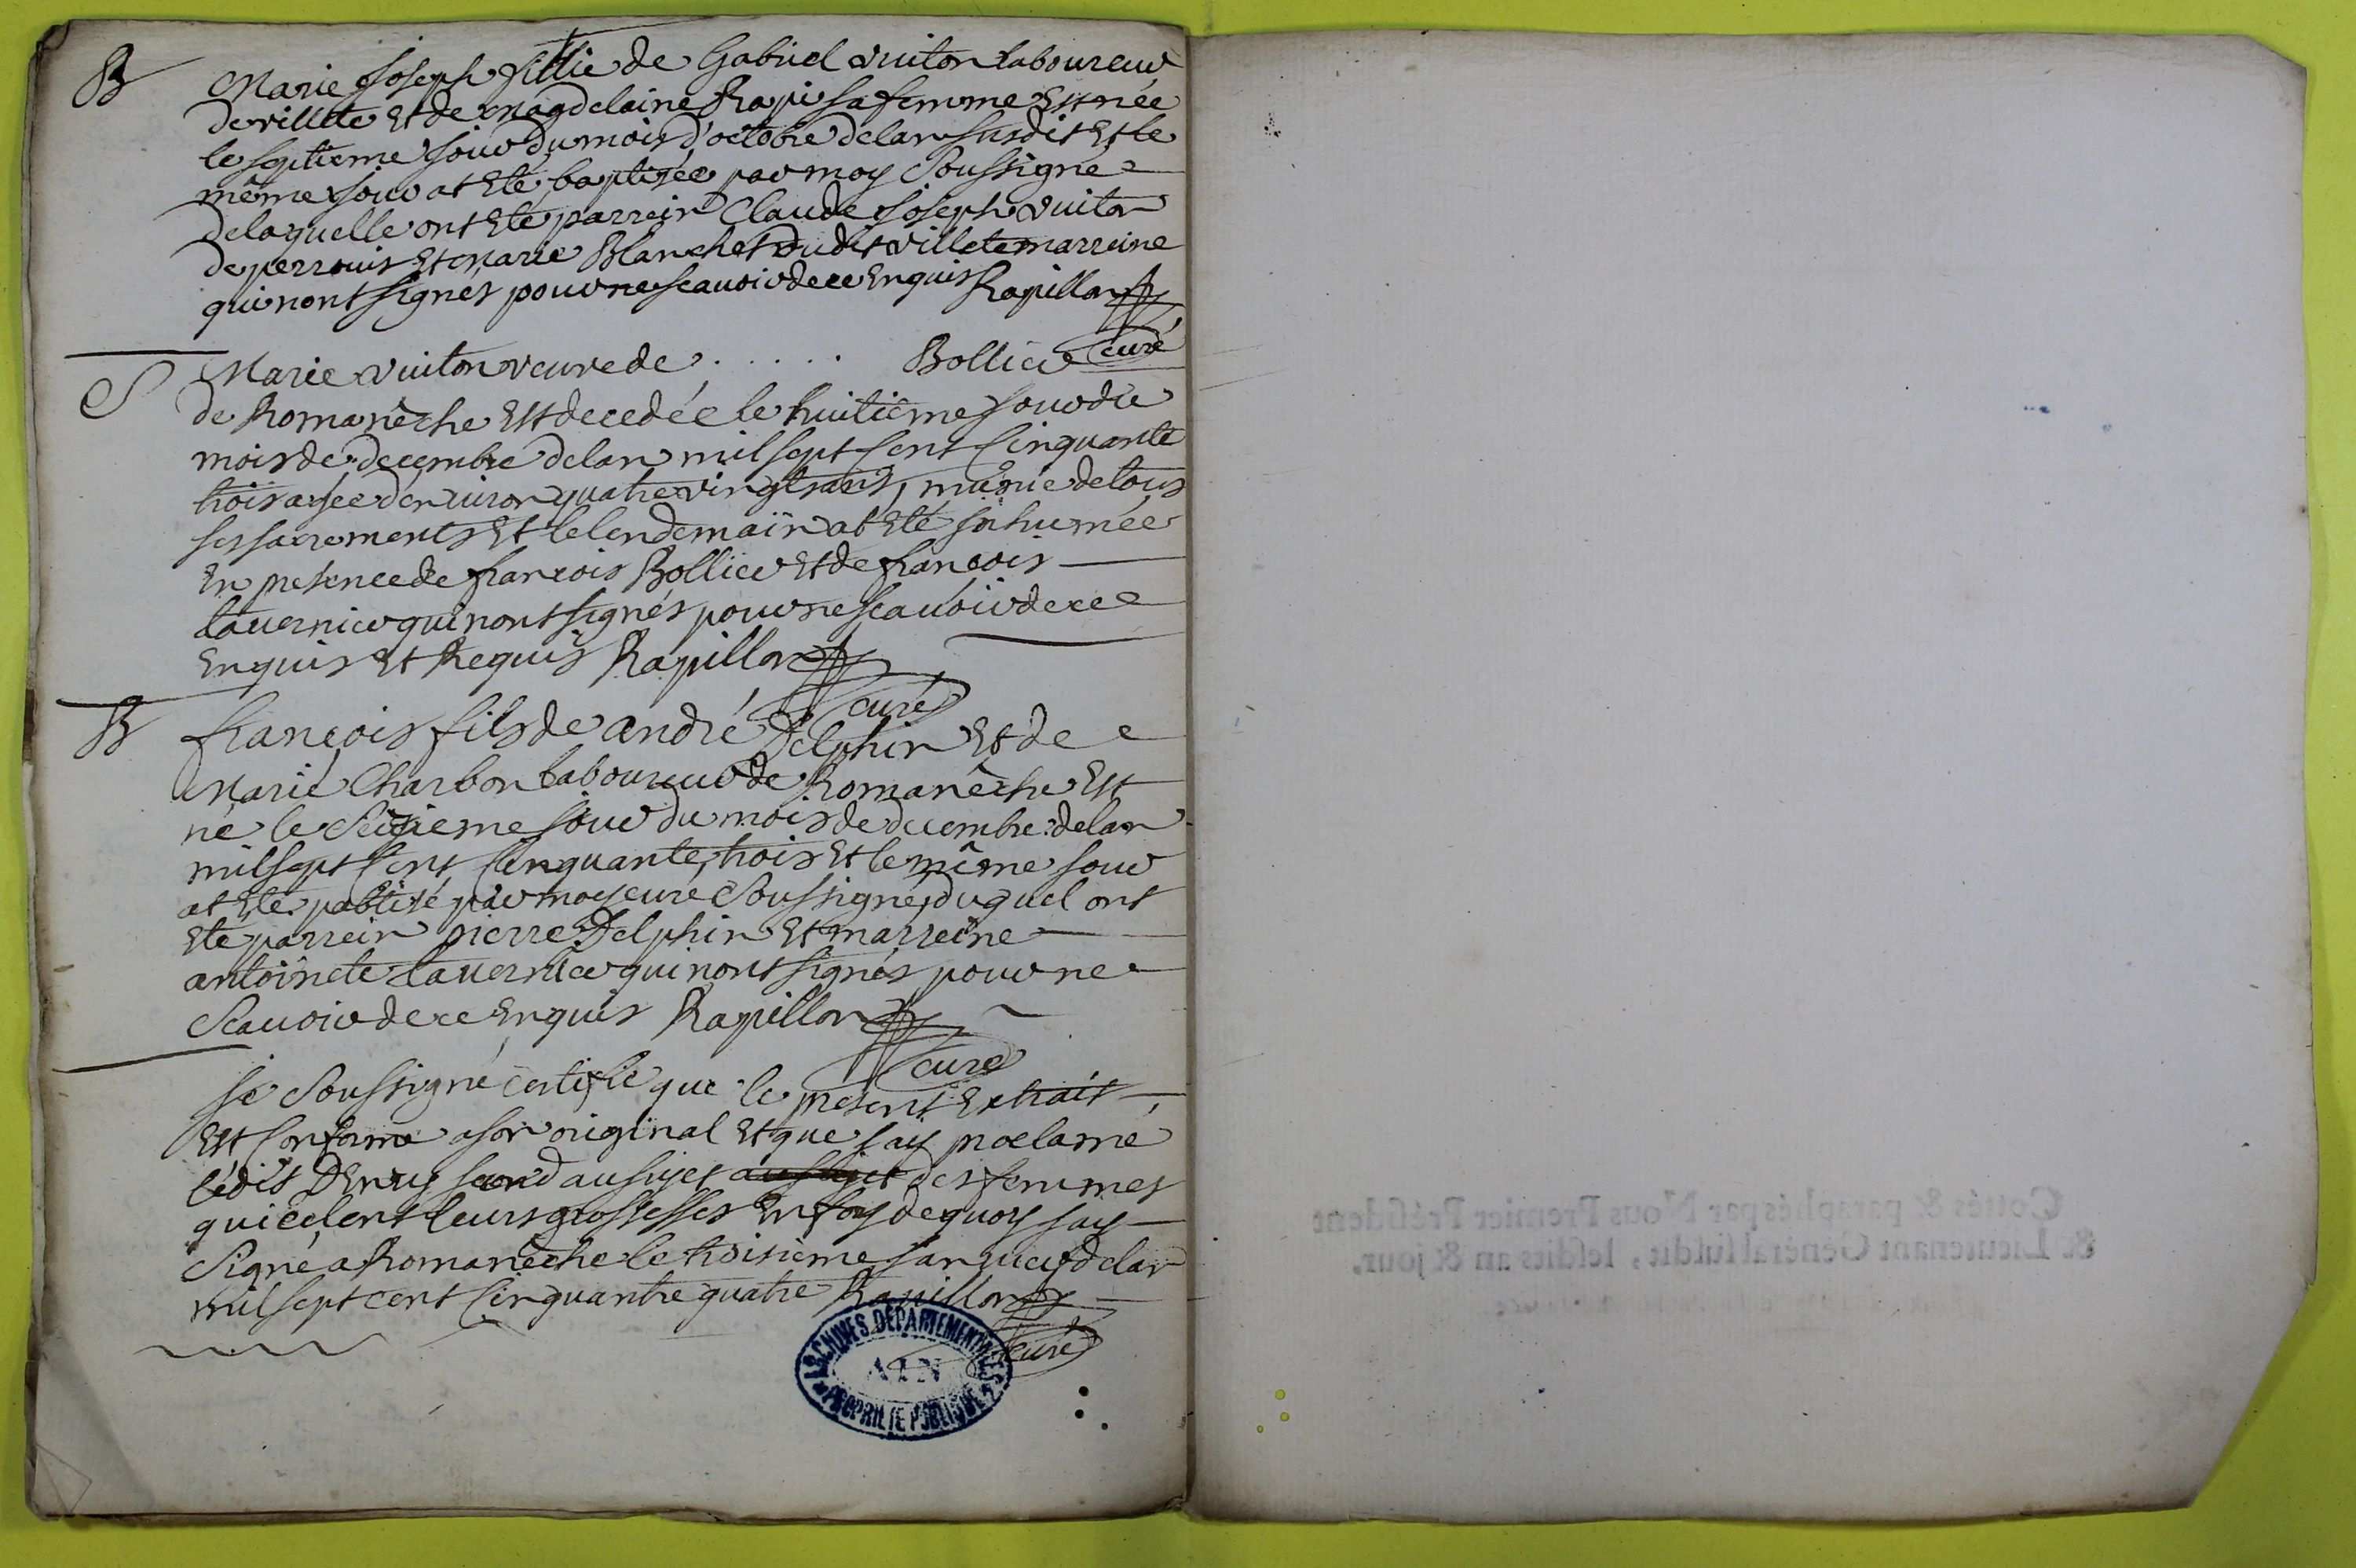 B
Marie Joseph fillie de Gabriel vuiton laboureur
de villete Et de magdelaine Rapi sa femme Est née
le septieme jour du mois d'octobre de lan susdit Et le
même jour at Eté baptisée par moy Soussigné
de laquelle ont Eté parrein Claude Joseph vuiton
de perrouis Et marie Blanchet dudit villete marreine
qui nont signés pour ne scauoir de ce Enquis Rapillon
curé
S
Marie vuiton veuve de . . . . . Bollier
de Romanêche Est decedée le huitiême jour du
mois de decembre de lan mil sept Cent Cinquante
trois agée d'environ quatre vingts ans, munie de tous
ses sacrements Et le lendemain at Eté inhumée
En presence de françois Bollier Et de françois
tavernier qui nont signés pour ne scauoir de ce
Enquis Et Requis Rapillon
curé
B
françois fils de andré Delphin Et de
Marie Charbon laboureur de Romanêche Est
né le Seizieme jour du mois de decembre de lan
mil sept Cent Cinquante trois Et le même jour
at Eté pabtisé par moy curé Soussigné, duquel ont
Eté parrein pierre Delphin Et marreine
antoinete tavernier qui nont signés pour ne
Scauoir de ce Enquis Rapillon
curé
je Soussigné certifie que le present Extrait
Est Conforme a son original Et que jay proclamé
lédit D'Enry second au sujet au sujet des femmes
qui cêlent leurs grossesses En foy de quoy jay
Signé a Romanêche le troisième janvier de lan
mil sept cent Cinquante quatre Rapillon
curé
ARCHIVES DEPARTEMENTALES
AIN
PROPRIETE PUBLIQUE
Cottés & paraphés par Nous Premier Président
& Lieutenant Général susdit, lesdits an & jour.